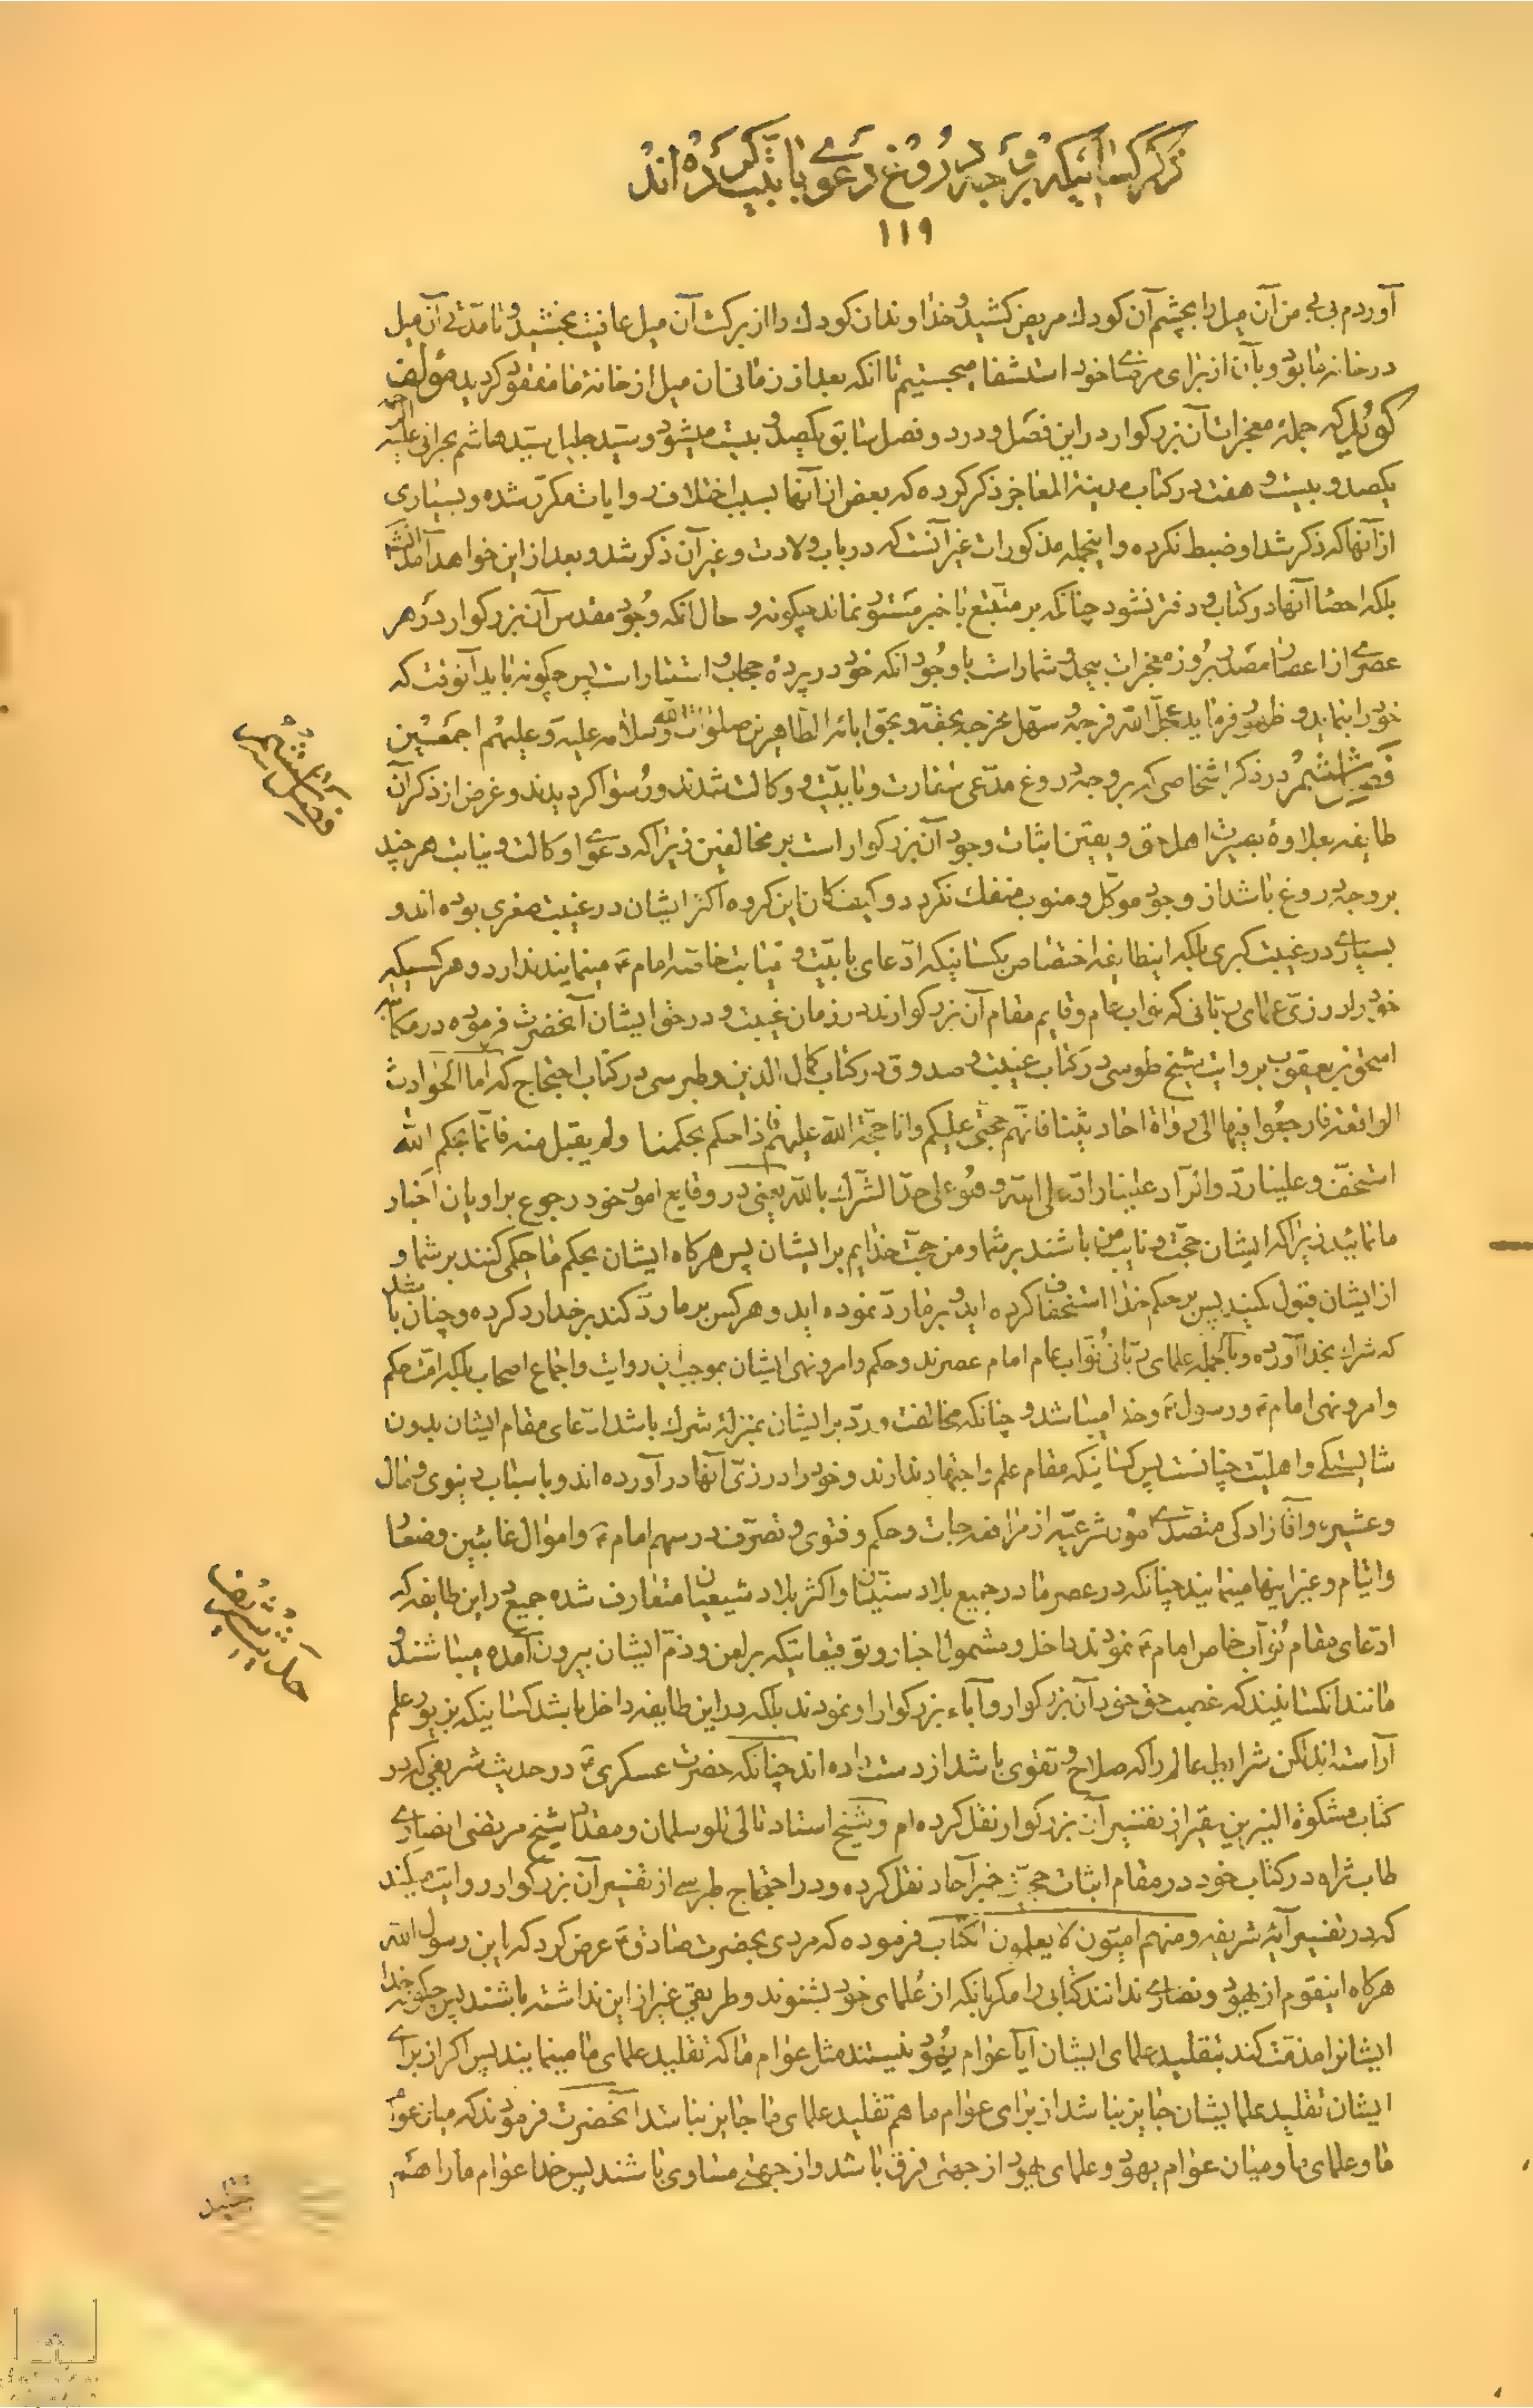 ذکر کسانیکه بر وجه دروغ دعوی بابیت کرده‌اند
۱۱۹
آوردم بی بی من آن میل را بچشم آن کودک مریض کشید و خداوند آن کودک را از برکت آن میل عافیت بخشید و تا مدتی آن میل
در خانه ما بود و بآن از برای مرضای خود استشفا میجستیم تا آنکه بعد از زمانی آن میل از خانهٔ ما مفقود گردید مؤلف
گوید که جملهٔ معجزات آن بزرگوار در این فصل و در دو فصل سابق یکصد و بیست میشود و سید جلیل سید هاشم بحرانی علیه الرحمه
یکصد و بیست و هفت در کتاب مدینة المعاجز ذکر کرده که بعض از آنها بسبب اختلاف روایات مکرر شده و بسیاری
از آنها که ذکر شد او ضبط نکرده و اینجمله مذکورات غیر آنست که در باب ولادت و غیر آن ذکر شد و بعد از این خواهد آمد انشاء الله
بلکه احصا آنها در کتاب و دفتر نشود چنانکه بر متتبع با خبر مستور نماند چگونه و حال آنکه وجود مقدس آن بزرگوار در هر
عصری از اعصار مصدر بروز معجزات بیحد و شمار است با وجود آنکه خود در پردهٔ حجاب و استتار است پس چگونه باید آنوقت که
خود را بنماید و ظهور فرماید عجل الله فرجه و سهل مخرجه بحقه و بحق آبائه الطاهرین صلوات الله و سلامه علیه و علیهم اجمعین
فصل ششم در ذکر اشخاصی که بر وجه دروغ مدعی سفارت و بابیت و وکالت شدند و رسوا گردیدند و غرض از ذکر آن
طایفه بعلاوهٔ بصیرت اهل حق و یقین اثبات وجود آن بزرگوار است بر مخالفین زیرا که دعوی او کالت و نیابت هر چند
بر وجه دروغ باشد از وجود موکل و منوب منفک نگردد و کیف کان این گروه اکثر ایشان در غیبت صغری بوده‌اند و
بسیاری در غیبت کبری بلکه اینطایفه اختصاص بکسانیکه ادعای بابیت و نیابت خاصه امام ع مینمایند ندارد و هر کسیکه
خود را در زی علمای ربانی که نواب عام و قایم مقام آن بزرگوارند در زمان غیبت و در حق ایشان آنحضرت فرموده در مکاتبه
اسحق بن یعقوب بروایت شیخ طوسی در کتاب غیبت و صدوق در کتاب کمال الدین و طبرسی در کتاب احتجاج که اما الحوادث
الواقعة فارجعوا فیها الی رواة احادیثنا فانهم حجتی علیکم و انا حجة الله علیهم فاذا حکم بحکمنا و لم یقبل منه فانما بحکم الله
استخف و علینا رد و الراد علینا راد علی الله و هو علی حد الشرک بالله یعنی در وقایع امور خود رجوع براویان اخبار
ما نمائید زیرا که ایشان حجت و نایب من باشند بر شما و من حجت خدایم بر ایشان پس هر گاه ایشان بحکم ما حکمی کنند بر شما و
از ایشان قبول نکنید پس بر حکم خدا استخفاف کرده اید و بر ما رد نموده اید و هر کس بر ما رد کند بر خدا رد کرده و چنان باشد
که شرک بخدا آورده و بالجمله علمای ربانی نواب عام امام عصرند و حکم و امر و نهی ایشان بموجب این روایت و اجماع اصحاب بلکه امت حکم
و امر و نهی امام ع و رسول ص و خدا میباشد و چنانکه مخالفت و رد بر ایشان بمنزلهٔ شرک باشد ادعای مقام ایشان بدون
شایستگی و اهلیت چنانست پس کسانیکه مقام علم و اجتهاد ندارند و خود را در زی آنها در آورده اند و باسباب دنیوی و مال
و عشیره و آقازادگی متصدی امور شرعیه از مرافعه جات و حکم و فتوی و تصرف در سهم امام ع و اموال غائبین و ضعفا
و ایتام و غیر اینها مینمایند چنانکه در عصر ما در جمیع بلاد سنیان و اکثر بلاد شیعیان متعارف شده جمیع در این طایفه که
ادعای مقام نواب خاص امام ع نمودند داخل و مشمول اخبار و توقیعاتیکه بر لعن و ذم ایشان بیرون آمده میباشند و
مانند آنکسانیند که غصب حق خود آن بزرگوار و آباء بزرگوار او نمودند بلکه در این طایفه داخل باشد کسانیکه بزیور علم
آراسته اند لکن شرایط عالم را که صلاح و تقوی باشد از دست داده اند چنانکه حضرت عسکری ع در حدیث شریفی که در
کتاب مشکوة النیرین بتقریر از تفسیر آن بزرگوار نقل کرده ام و شیخ استاد تالی تلو سلمان و مقداد شیخ مرتضی انصاری
طاب ثراه در کتاب خود در مقام اثبات حجیت خبر آحاد نقل کرده و در احتجاج طبرسی از تفسیر آن بزرگوار روایت میکند
که در تفسیر آیهٔ شریفه و منهم امیون لا یعلمون الکتاب فرموده که مردی بحضرت صادق ع عرض کرد که یابن رسول الله
هر گاه اینقوم از یهود و نصاری ندانند کتابی را مگر بآنکه از علمای خود بشنوند و طریقی غیر از این نداشته باشند پس چگونه خدا
ایشانرا مذمت کند بتقلید علمای ایشان آیا عوام یهود نیستند مثل عوام ما که تقلید علمای ما مینمایند پس اگر از برای
ایشان تقلید علمایشان جایز نباشد از برای عوام ما هم تقلید علمای ما جایز نباشد آنحضرت فرمودند که میان عوام
ما و علمای ما و میان عوام یهود و علمای یهود از جهتی فرق باشد و از جهتی مساوی باشند پس خدا عوام ما را هم